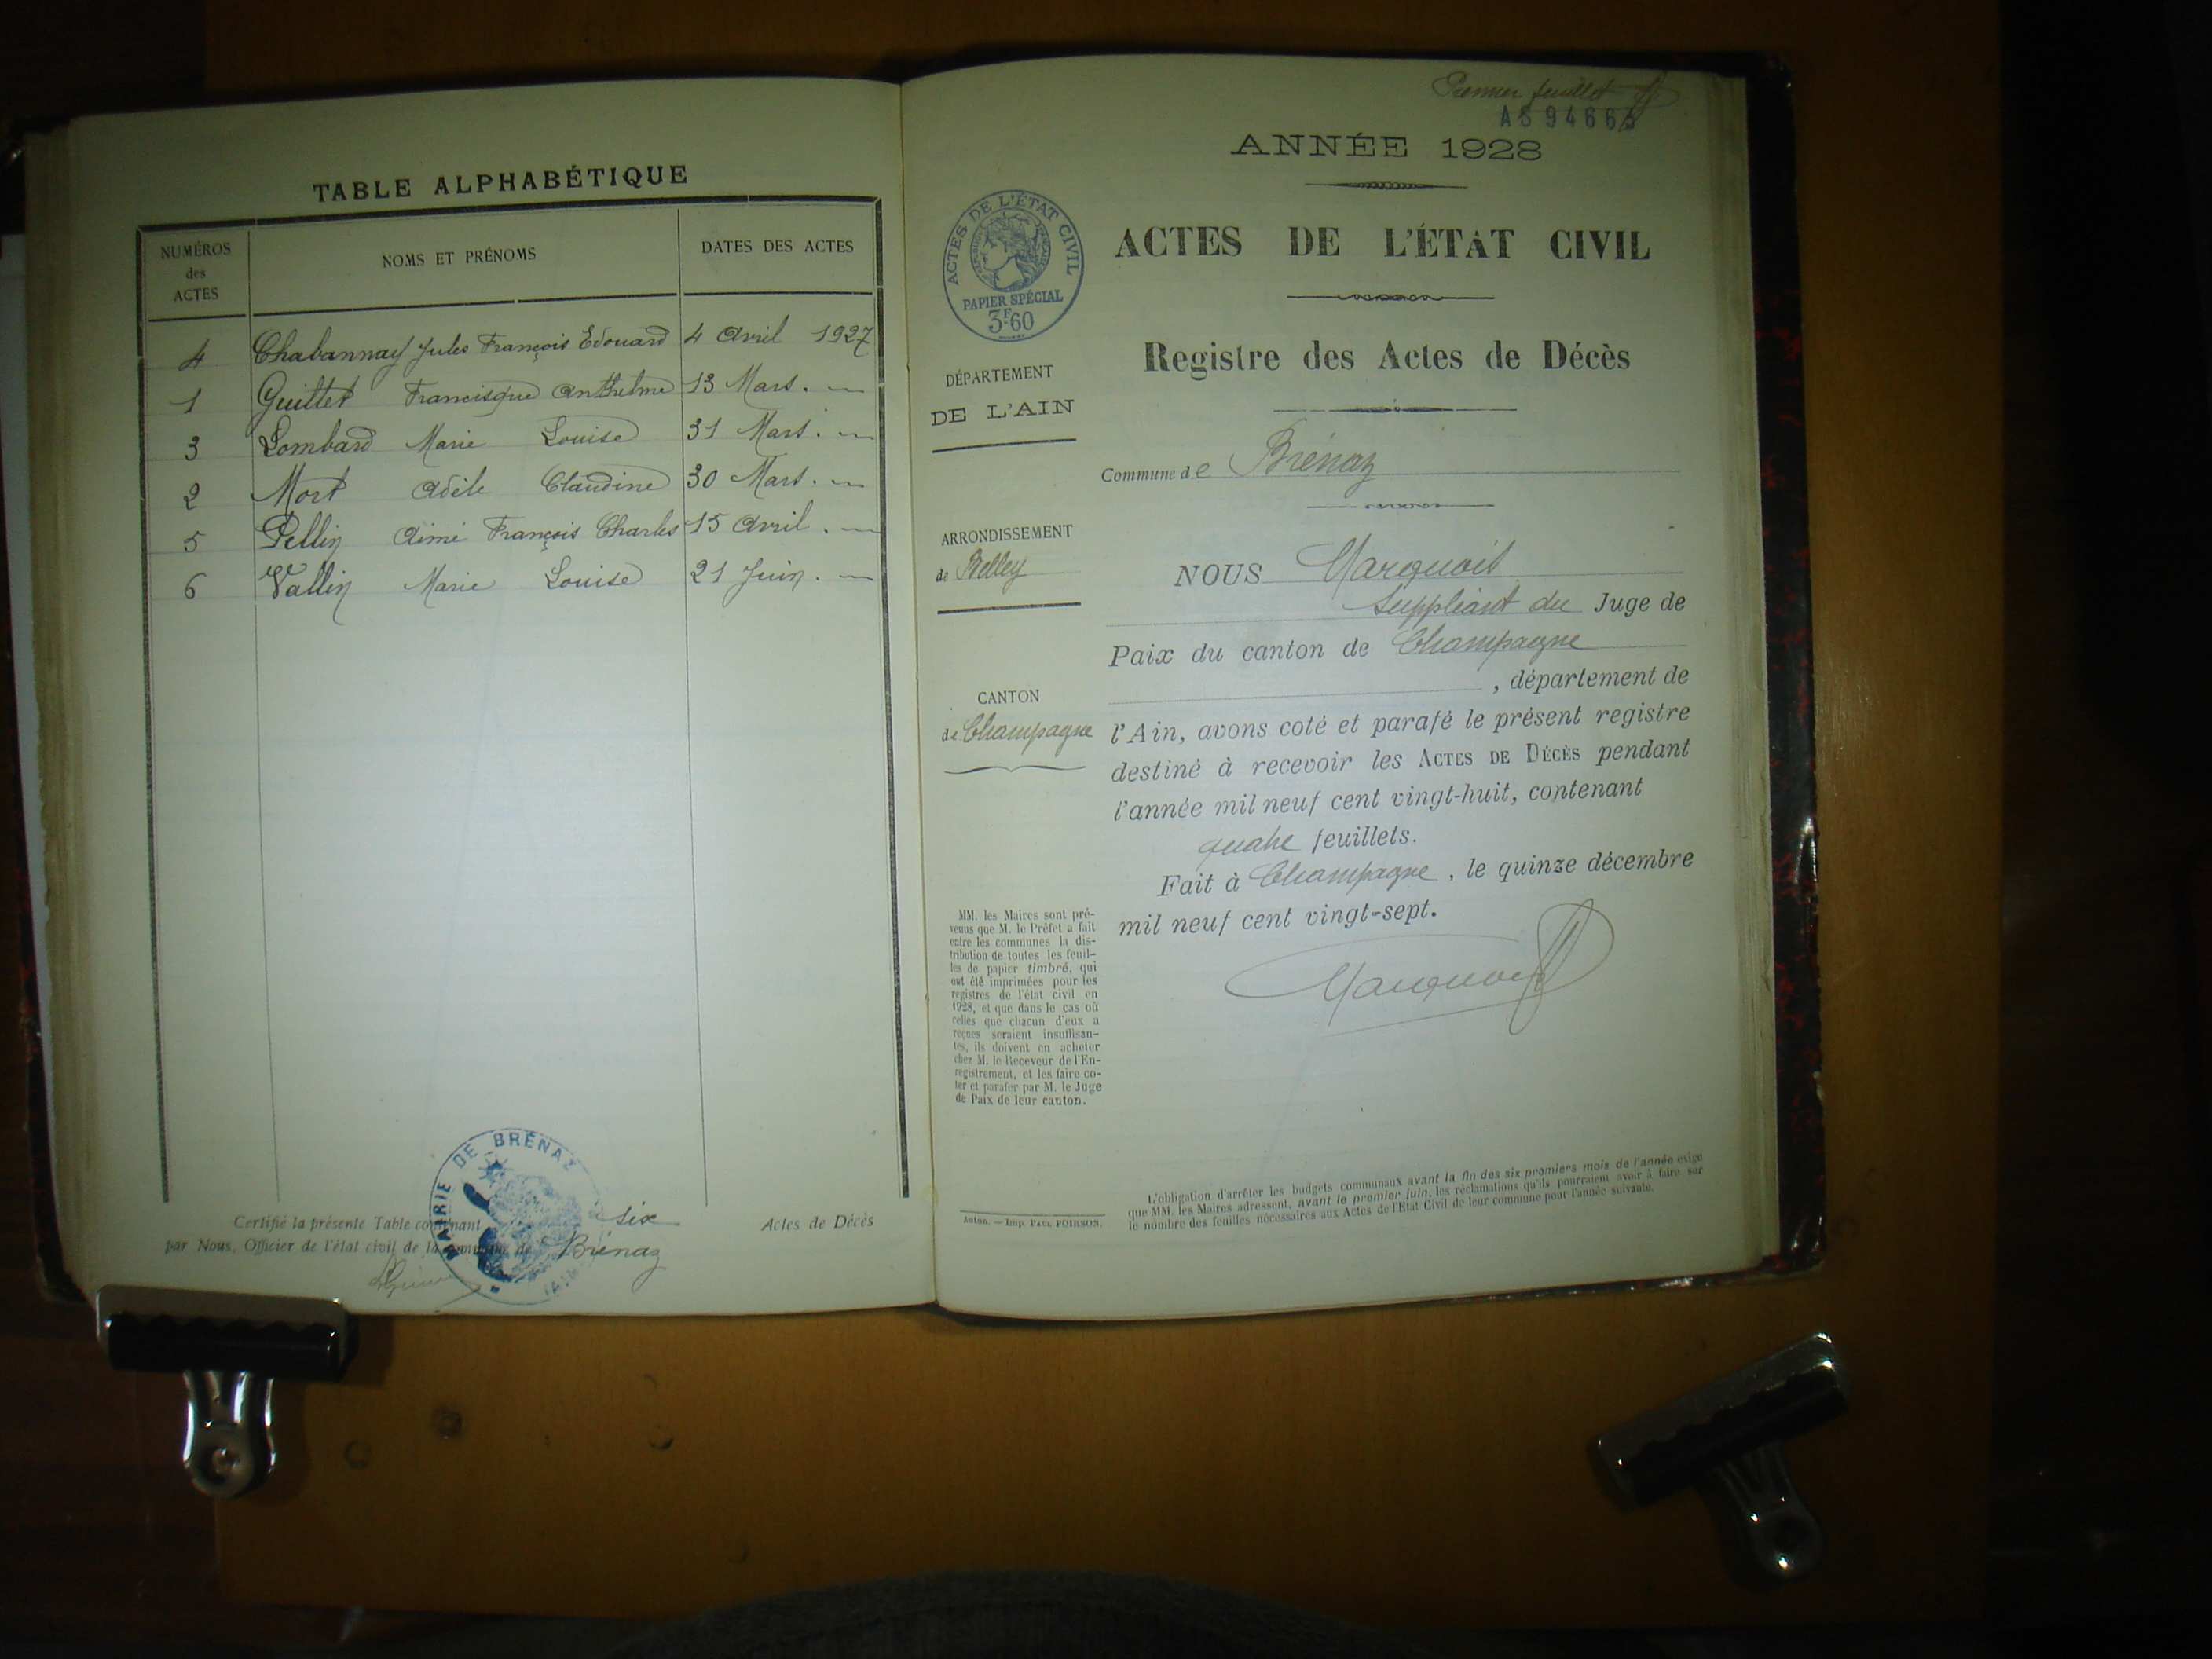 TABLE ALPHABÉTIQUE
NUMÉROS des ACTES NOMS ET PRÉNOMS DATES DES ACTES
4 Chabannay Jules François Edouard 4 Avril 1927
1 Guillet Francisque Anthelme 13 Mars. —
3 Lombard Marie Louise 31 Mars. —
2 Mort Adèle Claudine 30 Mars. —
5 Pellin Aimé François Charles 15 Avril. —
6 Vallin Marie Louise 21 Juin. —
Certifié la présente Table contenant six Actes de Décès
par Nous, Officier de l'état civil de la commune de Brénaz
MAIRIE DE BRÉNAZ
Premier feuillet
ANNÉE 1928
ACTES DE L'ÉTAT CIVIL
PAPIER SPÉCIAL
3F60
ACTES DE L'ÉTAT CIVIL
Registre des Actes de Décès
DÉPARTEMENT
DE L'AIN
Commune de Brénaz
ARRONDISSEMENT
de Belley
CANTON
de Champagne
NOUS Marquois
Suppléant du Juge de
Paix du canton de Champagne
, département de
l'Ain, avons coté et parafé le présent registre
destiné à recevoir les ACTES DE DÉCÈS pendant
l'année mil neuf cent vingt-huit, contenant
quatre feuillets.
Fait à Champagne, le quinze décembre
mil neuf cent vingt-sept.
Marquois
MM. les Maires sont pré-
venus que M. le Préfet a fait
entre les communes la dis-
tribution de toutes les feuil-
les de papier timbré, qui
ont été imprimées pour les
registres de l'état civil en
1928, et que dans le cas où
celles que chacun d'eux a
reçues seraient insuffisan-
tes, ils doivent en acheter
chez M. le Receveur de l'En-
registrement, et les faire co-
ter et parafer par M. le Juge
de Paix de leur canton.
L'obligation d'arrêter les budgets communaux avant la fin des six premiers mois de l'année exige
que MM. les Maires adressent, avant le premier juin, les réclamations qu'ils pourraient avoir à faire sur
le nombre des feuilles nécessaires aux Actes de l'État Civil de leur commune pour l'année suivante.
Autun. — Imp. PAUL POIRSON.